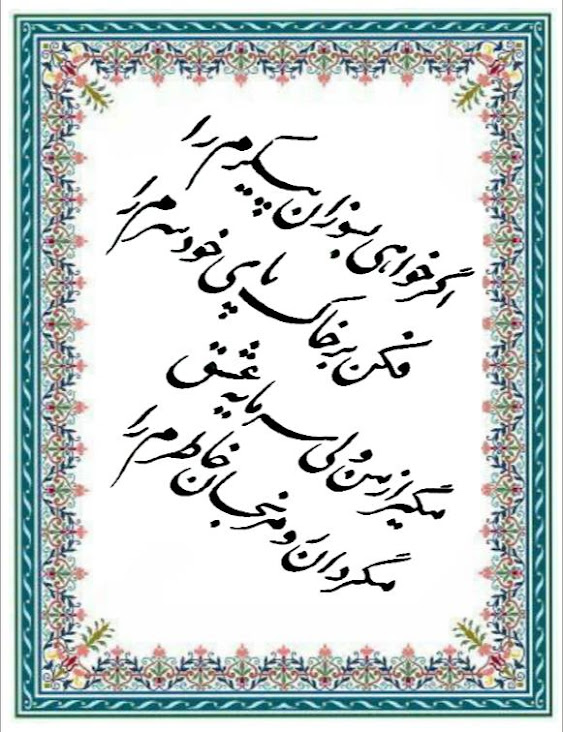 اگر خواهی بسوزان پیکرم را
فکن بر خاک پای خود سرم را
مگیر از من ولی سرمایه عشق
مگردان و مرنجان خاطرم را